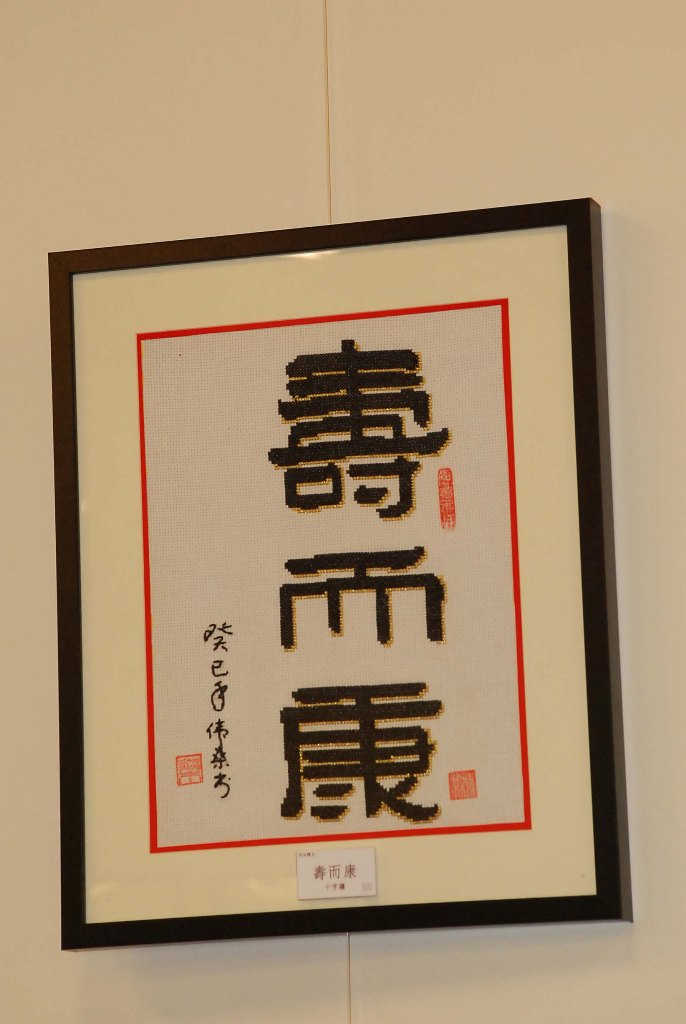 壽而康
癸巳年偉燊书
壽而康
十字繡